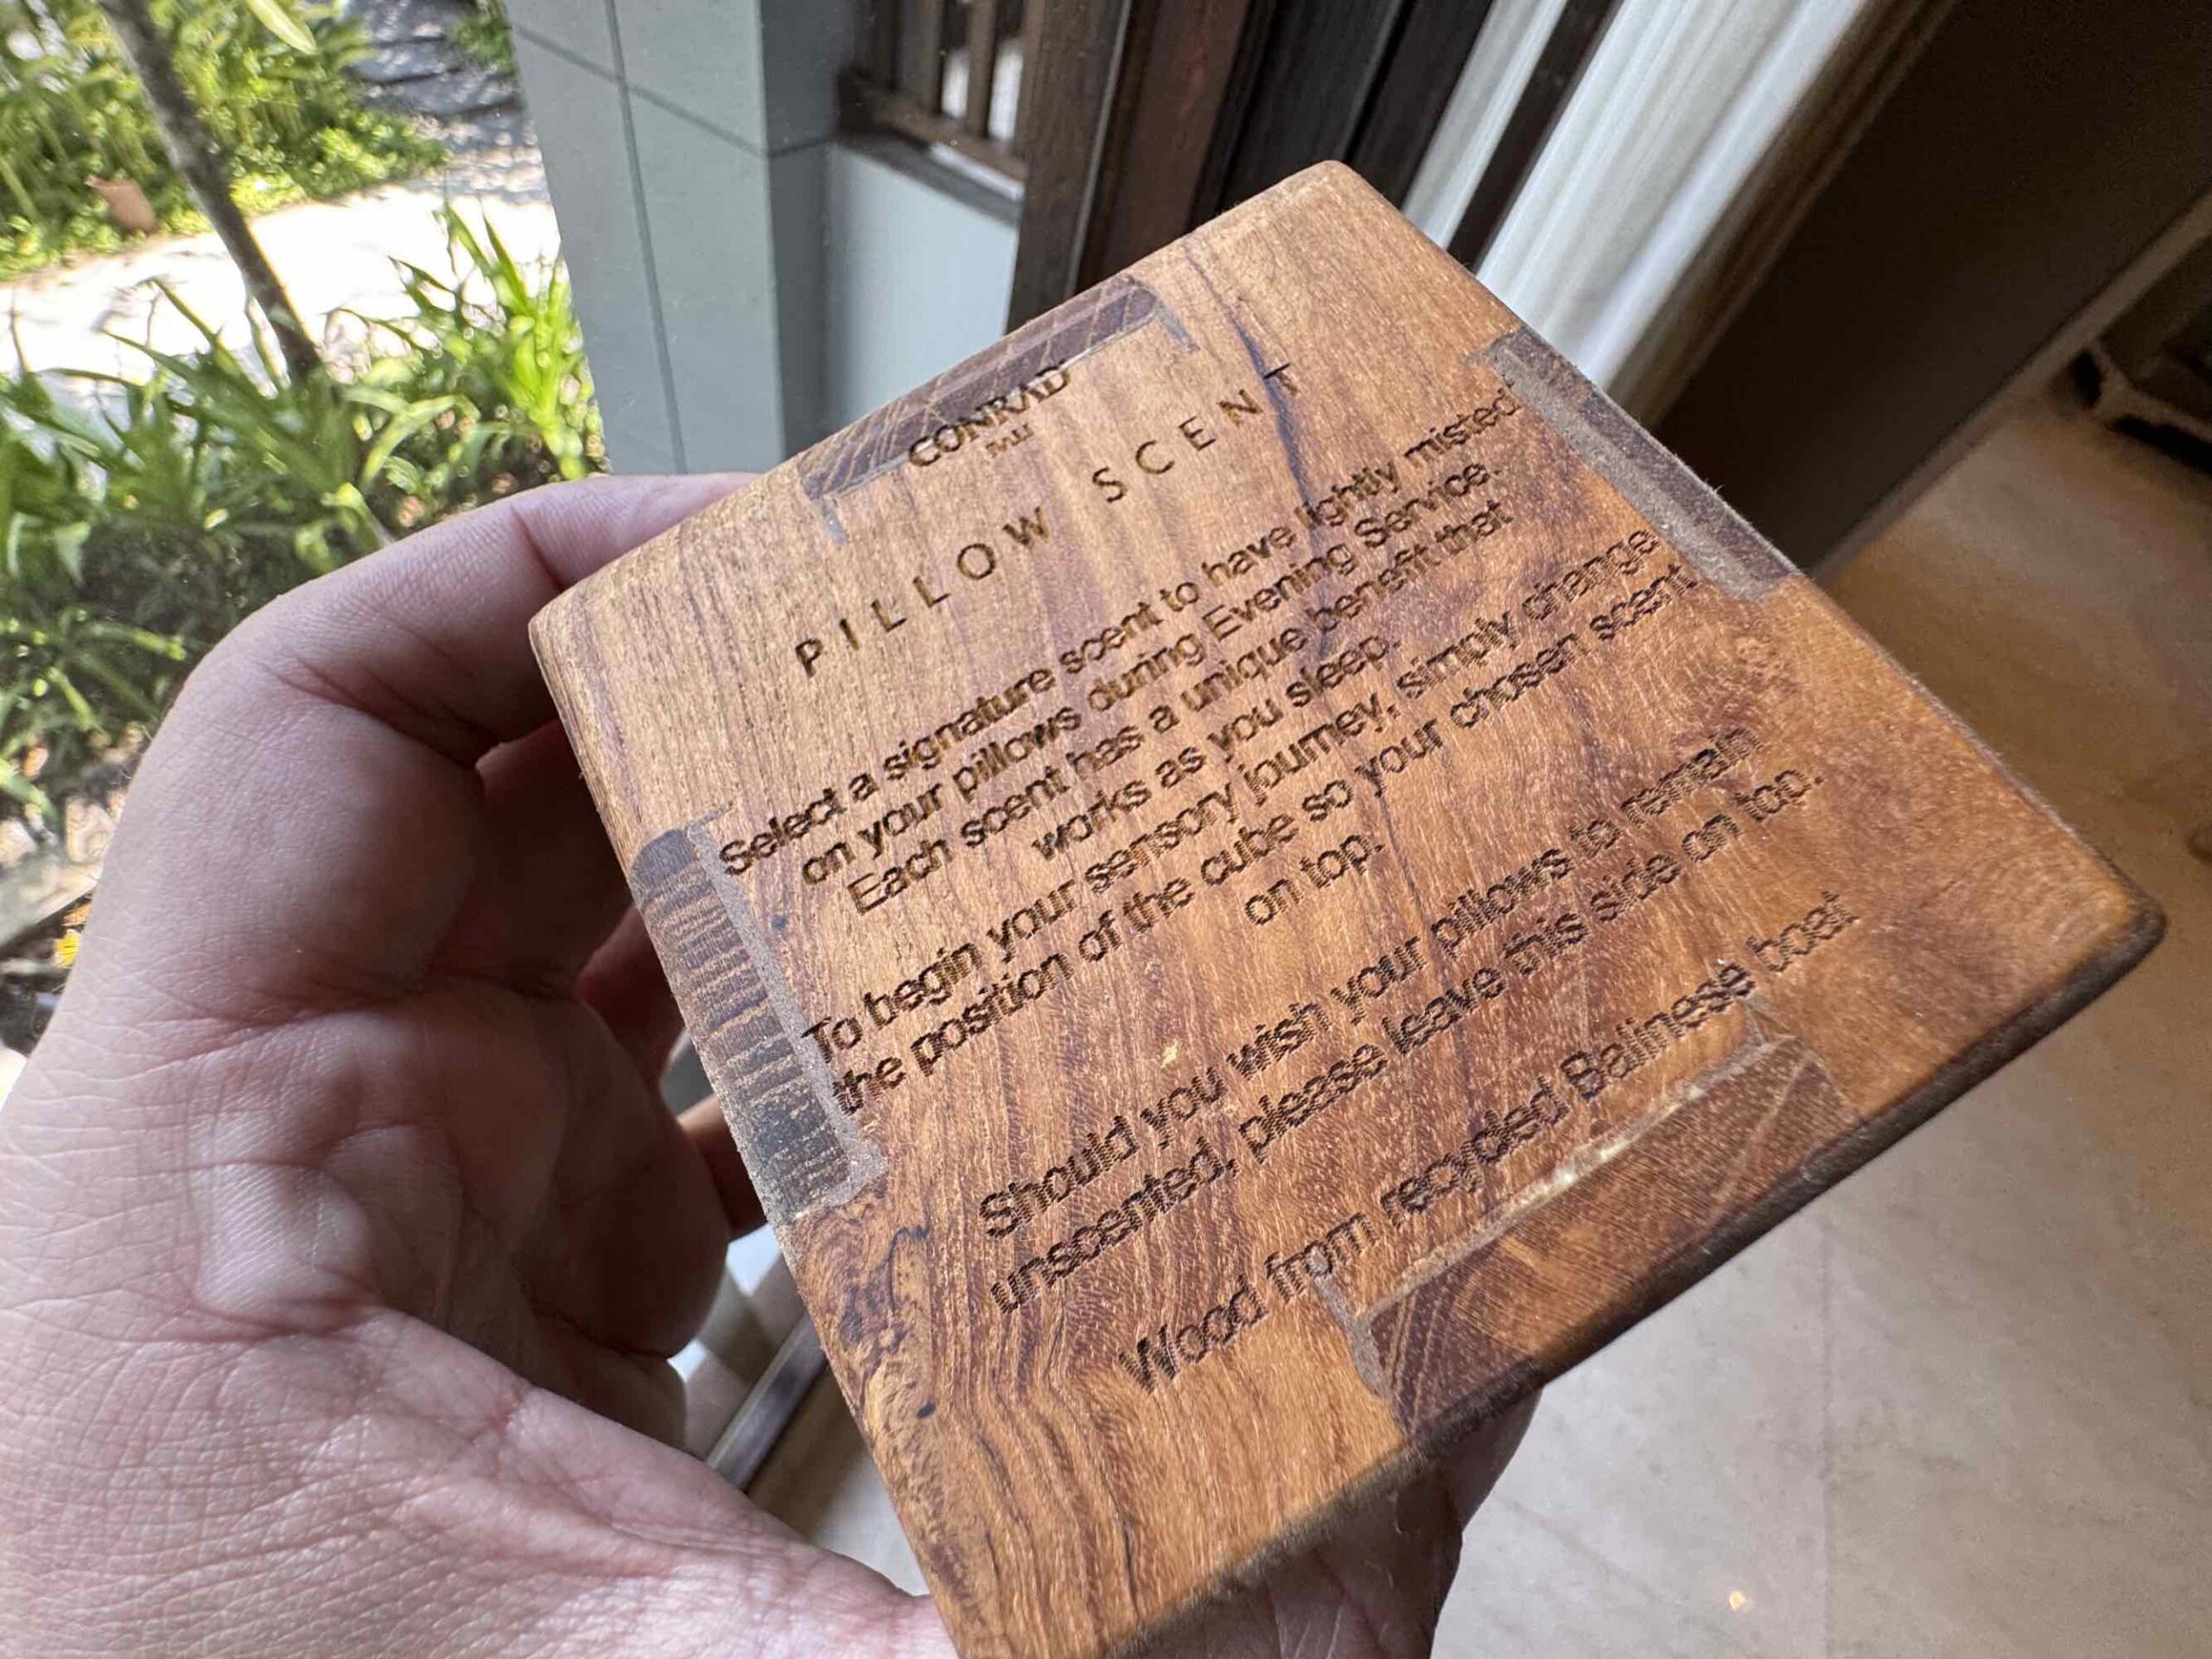 CONRAD
BALI
PILLOW SCENT
Select a signature scent to have lightly misted
on your pillows during Evening Service.
Each scent has a unique benefit that
works as you sleep.
To begin your sensory journey, simply change
the position of the cube so your chosen scent
on top.
Should you wish your pillows to remain
unscented, please leave this side on top.
Wood from recycled Balinese boat